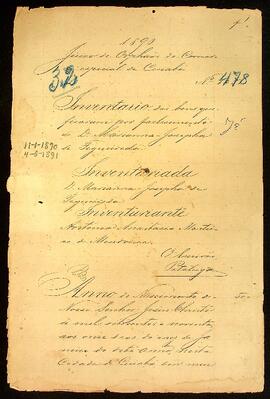 1890
Juizo de Orphãos da Comarca
especial de Cuiabá
32
Nº 478
Inventario dos bens que
ficaram por fallecimento
de D. Marianna Josepha
de Siqueira
11-1-1890
4-5-1891
Inventariada
D. Marianna Josepha de
Siqueira
Inventariante
Antonio Anastacio
de Mendonça
O Escrivão
Anno do Nascimento de
Nosso Senhor Jesus Christo
de mil oitocentos e noventa,
aos onze dias do mez de Ja
neiro do dito anno, nesta
Cidade de Cuiabá em meu